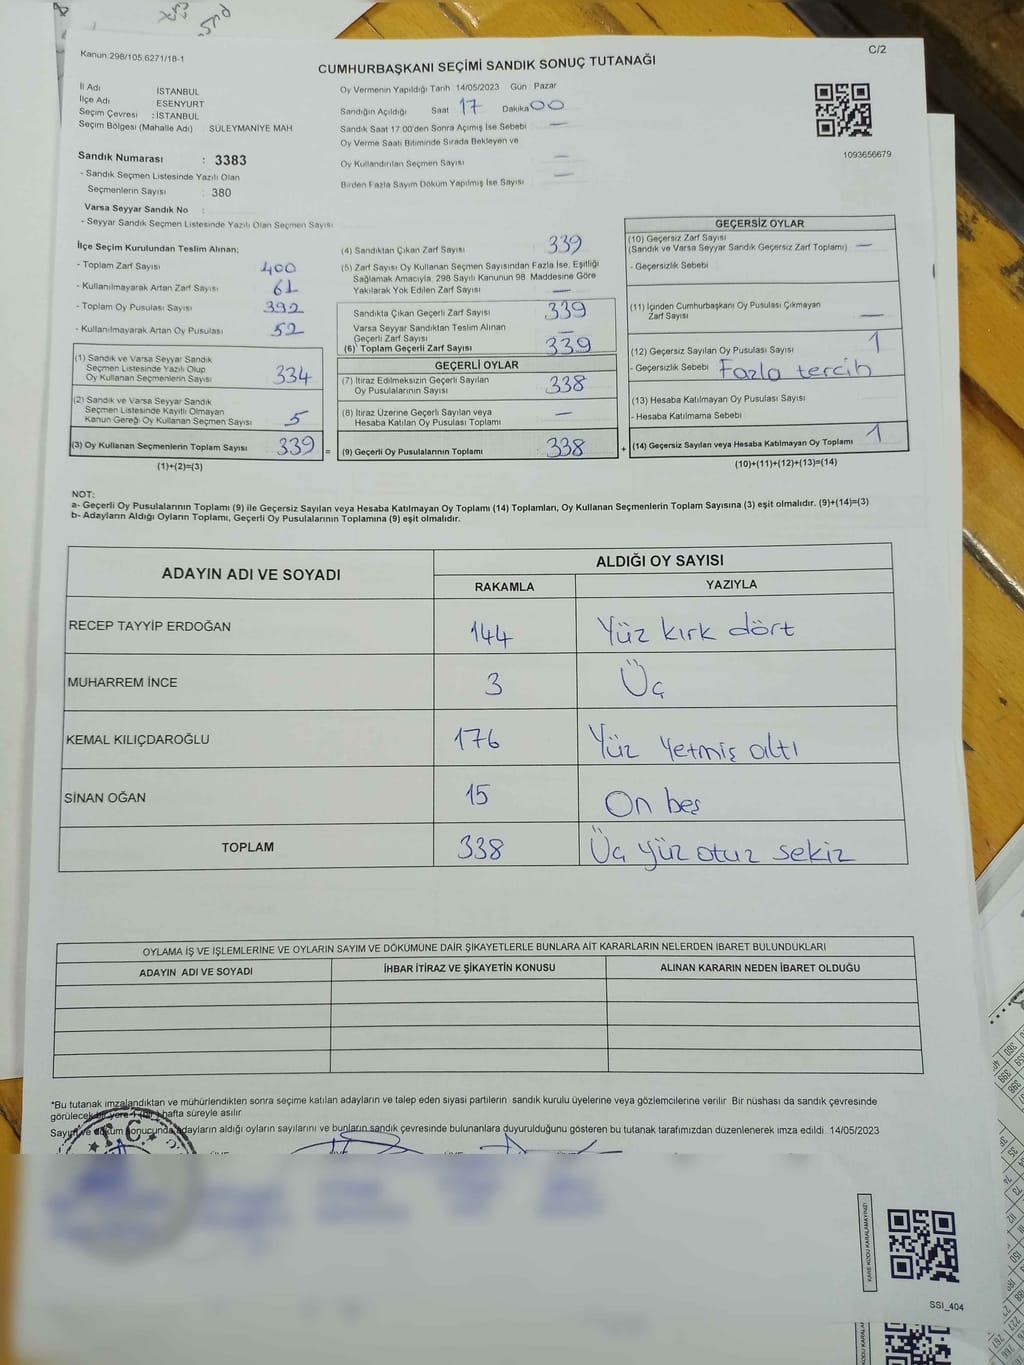 Kanun:298/105,6271/18-1
C/2
CUMHURBAŞKANI SEÇİMİ SANDIK SONUÇ TUTANAĞI
İl Adı İSTANBUL
İlçe Adı ESENYURT
Seçim Çevresi : İSTANBUL
Seçim Bölgesi (Mahalle Adı) SÜLEYMANİYE MAH
Sandık Numarası : 3383
- Sandık Seçmen Listesinde Yazılı Olan
Seçmenlerin Sayısı : 380
Varsa Seyyar Sandık No :
- Seyyar Sandık Seçmen Listesinde Yazılı Olan Seçmen Sayısı
Oy Vermenin Yapıldığı Tarih 14/05/2023 Gün Pazar
Sandığın Açıldığı Saat 17 Dakika 00
Sandık Saat 17 00'den Sonra Açımış İse Sebebi —
Oy Verme Saati Bitiminde Sırada Bekleyen ve
Oy Kullandırılan Seçmen Sayısı —
Birden Fazla Sayım Döküm Yapılmış İse Sayısı —
1093656679
İlçe Seçim Kurulundan Teslim Alınan;
- Toplam Zarf Sayısı 400
- Kullanılmayarak Artan Zarf Sayısı 61
- Toplam Oy Pusulası Sayısı 392
- Kullanılmayarak Artan Oy Pusulası 52
(1) Sandık ve Varsa Seyyar Sandık
Seçmen Listesinde Yazılı Olup
Oy Kullanan Seçmenlerin Sayısı 334
(2) Sandık ve Varsa Seyyar Sandık
Seçmen Listesinde Kayıtlı Olmayan
Kanun Gereği Oy Kullanan Seçmen Sayısı 5
(3) Oy Kullanan Seçmenlerin Toplam Sayısı 339 =
(1)+(2)=(3)
(4) Sandıktan Çıkan Zarf Sayısı 339
(5) Zarf Sayısı Oy Kullanan Seçmen Sayısından Fazla İse, Eşitliği
Sağlamak Amacıyla; 298 Sayılı Kanunun 98. Maddesine Göre
Yakılarak Yok Edilen Zarf Sayısı —
Sandıkta Çıkan Geçerli Zarf Sayısı 339
Varsa Seyyar Sandıktan Teslim Alınan
Geçerli Zarf Sayısı —
(6) Toplam Geçerli Zarf Sayısı 339
GEÇERLİ OYLAR
(7) İtiraz Edilmeksizin Geçerli Sayılan
Oy Pusulasının Sayısı 338
(8) İtiraz Üzerine Geçerli Sayılan veya
Hesaba Katılan Oy Pusulası Toplamı —
(9) Geçerli Oy Pusulalarının Toplamı 338 +
GEÇERSİZ OYLAR
(10) Geçersiz Zarf Sayısı
(Sandık ve Varsa Seyyar Sandık Geçersiz Zarf Toplamı) —
- Geçersizlik Sebebi
(11) İçinden Cumhurbaşkanı Oy Pusulası Çıkmayan
Zarf Sayısı —
(12) Geçersiz Sayılan Oy Pusulası Sayısı 1
- Geçersizlik Sebebi Fazla tercih
(13) Hesaba Katılmayan Oy Pusulası Sayısı
- Hesaba Katılmama Sebebi
(14) Geçersiz Sayılan veya Hesaba Katılmayan Oy Toplamı 1
(10)+(11)+(12)+(13)=(14)
NOT:
a- Geçerli Oy Pusulalarının Toplamı (9) ile Geçersiz Sayılan veya Hesaba Katılmayan Oy Toplamı (14) Toplamları, Oy Kullanan Seçmenlerin Toplam Sayısına (3) eşit olmalıdır. (9)+(14)=(3)
b- Adayların Aldığı Oyların Toplamı, Geçerli Oy Pusulalarının Toplamına (9) eşit olmalıdır.
ADAYIN ADI VE SOYADI
ALDIĞI OY SAYISI
RAKAMLA YAZIYLA
RECEP TAYYİP ERDOĞAN 144 Yüz kırk dört
MUHARREM İNCE 3 Üç
KEMAL KILIÇDAROĞLU 176 Yüz yetmiş altı
SİNAN OĞAN 15 On beş
TOPLAM 338 Üç yüz otuz sekiz
OYLAMA İŞ VE İŞLEMLERİNE VE OYLARIN SAYIM VE DÖKÜMÜNE DAİR ŞİKAYETLERLE BUNLARA AİT KARARLARIN NELERDEN İBARET BULUNDUKLARI
ADAYIN ADI VE SOYADI İHBAR İTİRAZ VE ŞİKAYETİN KONUSU ALINAN KARARIN NEDEN İBARET OLDUĞU
*Bu tutanak imzalandıktan ve mühürlendikten sonra seçime katılan adayların ve talep eden siyasi partilerin sandık kurulu üyelerine veya gözlemcilerine verilir Bir nüshası da sandık çevresinde
görülecek bir yere 1 (bir) hafta süreyle asılır
Sayım ve döküm sonucunda adayların aldığı oyların sayılarını ve bunların sandık çevresinde bulunanlara duyurulduğunu gösteren bu tutanak tarafımızdan düzenlenerek imza edildi. 14/05/2023
T.C.
KARE KODU KARALAMAYINIZ!
SSI_404